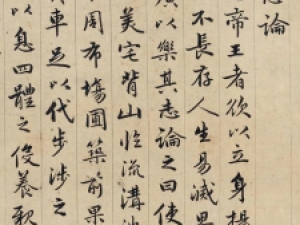 志論
帝王者欲以立身揚
不長存人生易滅
以樂其志論之曰使
美宅背山臨流溝池
周布場圃築前果
車足以代步涉之
以息四體之役養親